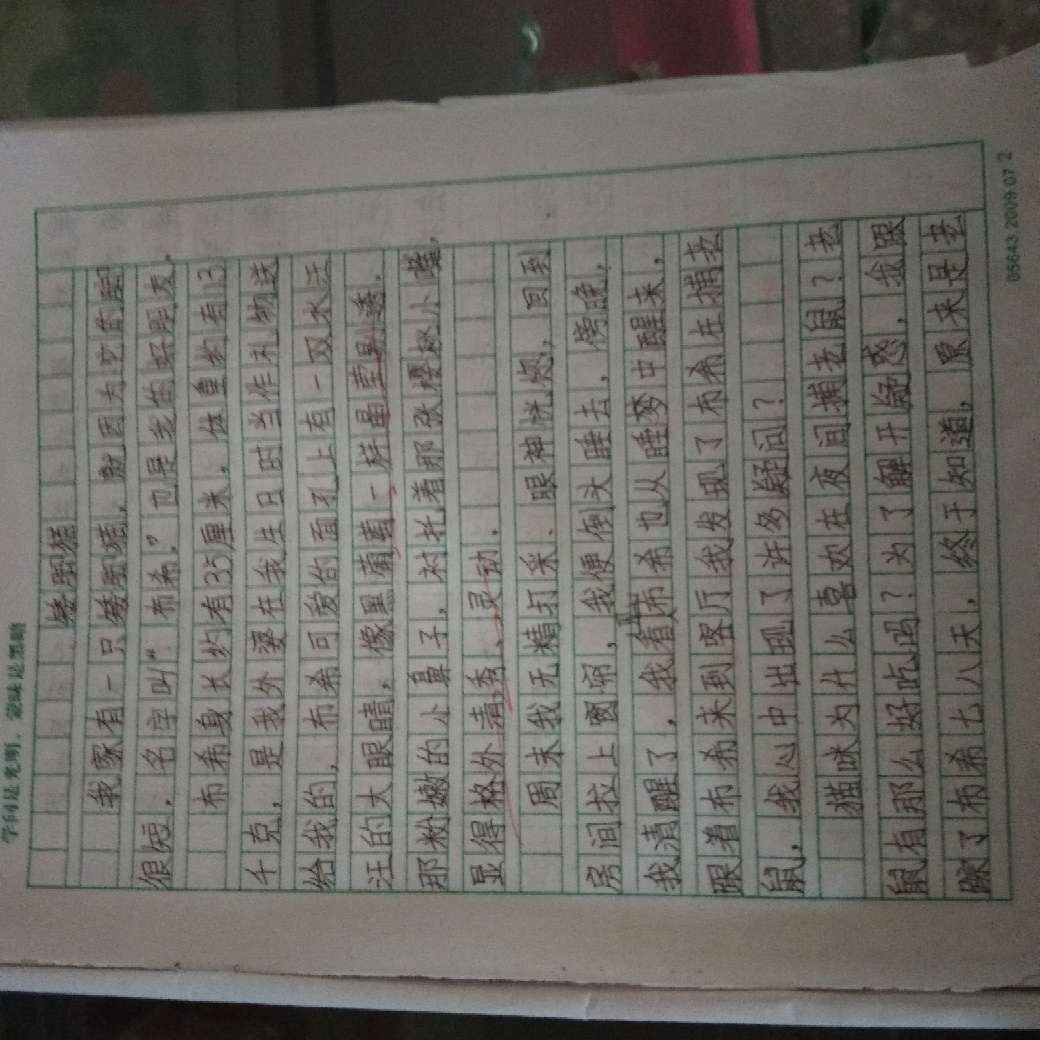 学问是光明，蒙昧是黑暗
矮脚猫
我家有一只矮脚猫，就因为它的脚
很短，名字叫“布希。”也是我的好朋友。
布希身长约有35厘米，体重约有13
千克，是我外婆在我生日时当作礼物送
给我的，布希可爱的面孔上有一双水汪
汪的大眼睛，像黑葡萄一样晶莹剔透。
那粉嫩的小鼻子，衬托着那张樱桃小嘴，
显得格外清秀、灵动。
周末我无精打采、眼神恍惚，回到
房间拉上窗帘，我便倒头睡去，傍晚，
我清醒了，我看布希也从睡梦中醒来，
跟着布希来到客厅我发现了布希在捕老
鼠，我心中出现了许多疑问？
猫咪为什么喜欢在夜间捕老鼠？老
鼠有那么好吃吗？为了解开疑惑，我跟
踪了布希七八天，终于知道，原来是老
05643 2009.07 2